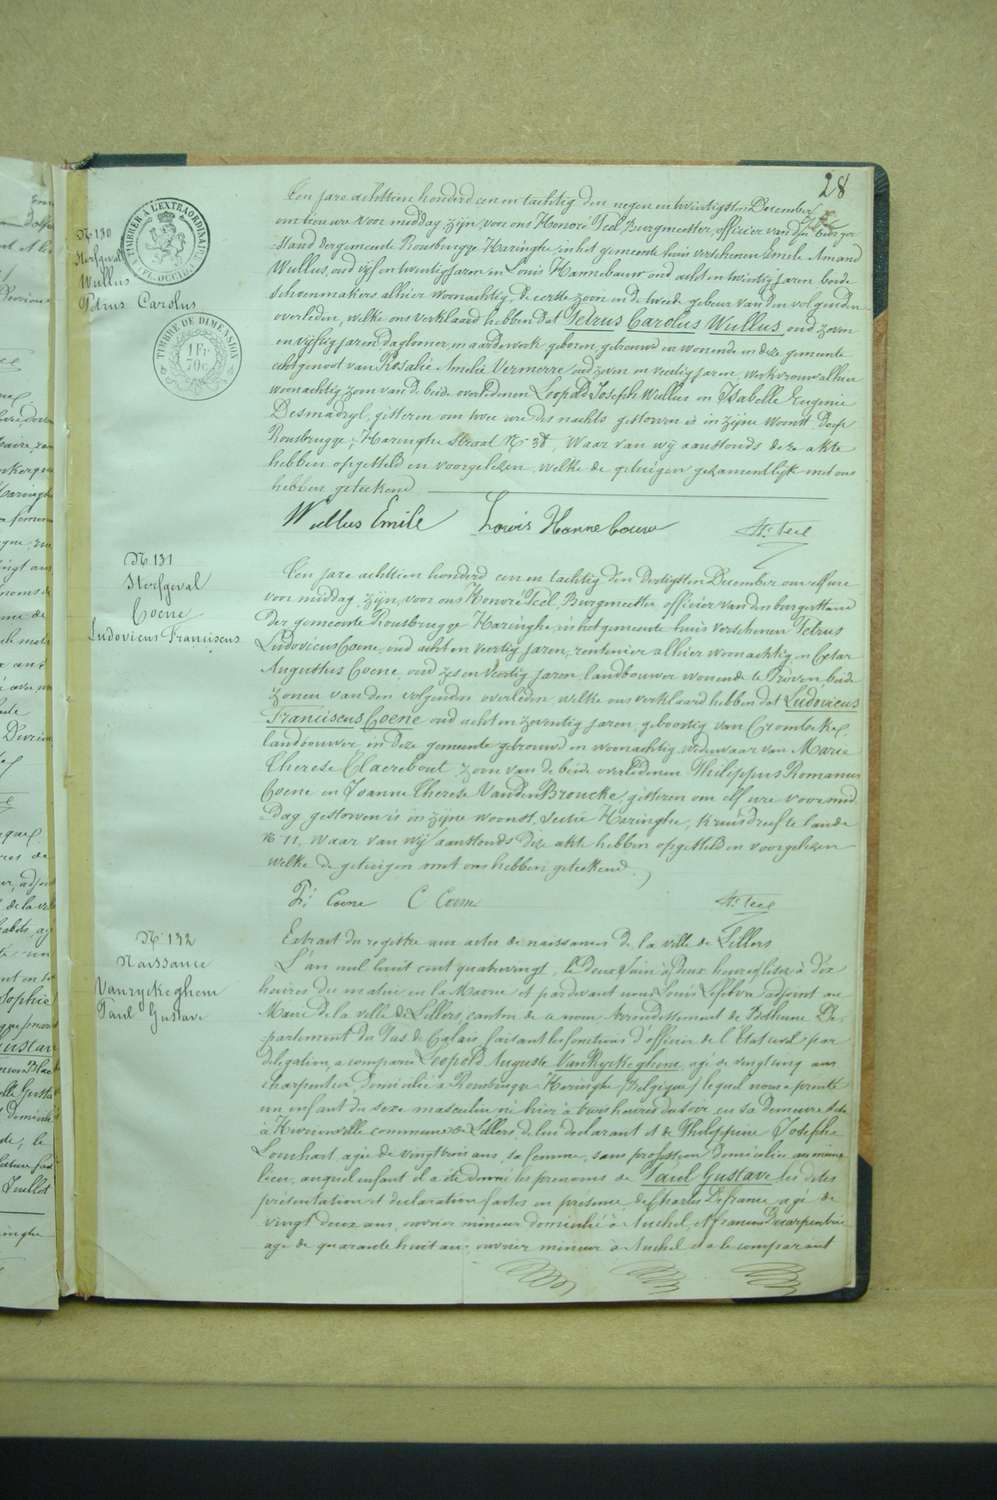 28
TIMBRER À L'EXTRAORDINAIRE
FL. OCCID.
TIMBRE DE DIMENSION
1 Fr
70 c
N. 130
Sterfgeval
Wullus
Petrus Carolus
Ten jare achttien honderd een en tachtig den negen en twintigsten December
om tien ure voor middag, zijn, voor ons Honoré Teel, Burgmeester, officier van den burger
stand der gemeente Rousbrugge Haringhe, in het gemeente huis verschenen Emile Amand
Wullus, oud vijf en twintig jaren en Louis Hannebouw oud acht en twintig jaren beide
schoenmakers alhier woonachtig, de eerste zoon en de tweede gebuur van den volgenden
overleden, welke ons verklaard hebben dat Petrus Carolus Wullus, oud zeven
en vijftig jaren daglooner in aardewerk geboren, getrouwd en wonende in deze gemeente
echtgenoot van Rosalie Amelie Vermerre, oud zeven en veertig jaren, werkvrouw alhier
woonachtig, zoon van de beide overledenen Leopold Joseph Wullus en Isabelle Eugenie
Desmadryl, gisteren om twee ure des nachts gestorven is in zijne woonst, dorp
Rousbrugge, Haringhe straat N. 38, Waar van wij aanstonds deze akte
hebben opgesteld en voorgelezen, welke de getuigen gezamentlijk met ons
hebben geteekend.
Wullus Emile Louis Hannebouw H. Teel
N. 131
Sterfgeval
Coene
Ludovicus Franciscus
Ten jare achttien honderd een en tachtig den dertigsten December om elf ure
voor middag, zijn, voor ons Honoré Teel, Burgmeester, officier van den burgerstand
der gemeente Rousbrugge Haringhe, in het gemeente huis verschenen Petrus
Ludovicus Coene, oud acht en veertig jaren, rentenier alhier woonachtig en Cesar
Augustus Coene, oud zes en veertig jaren, landbouwer wonende te Proven beide
zonen van den volgenden overleden, welke ons verklaard hebben dat Ludovicus
Franciscus Coene oud acht en zeventig jaren, geboortig van Crombeke,
landbouwer, in deze gemeente getrouwd en woonachtig, weduwaar van Marie
Therese Claerebout, zoon van de beide overledenen Philippus Romanus
Coene en Joanne Therese Vanden Broucke, gisteren om elf ure voor mid
dag gestorven is in zijne woonst, sectie Haringhe, kruisdreefte lande
N. 11, waar van wij aanstonds deze akte hebben opgesteld en voorgelezen
welke de getuigen met ons hebben geteekend.
P. Coene C Coene H. Teel
N. 132
Naissance
Vanryckeghem
Paul Gustave
Extrait du registre aux actes de naissances de la ville de Lillers
L'an mil huit cent quatrevingt, le Deux Juin à dix
heures du matin en la Mairie et pardevant nous Louis Lefebvre adjoint au
Maire de la ville de Lillers, canton de ce nom Arrondissement de Béthune Dé-
partement du Pas de Calais, faisant les fonctions d'officier de l'Etat civil par
délégation, a comparu Léopold Auguste VanRyckeghem, agé de vingt un ans
charpentier, domicilié à Rousbrugge Haringhe (Belgique) lequel nous a presenté
un enfant du sexe masculin né hier à heures du soir, en sa demeure sise
à commune de Lillers, de lui declarant et de Philippine Josephe
Louchart agée de vingt trois ans, sa femme, sans profession domiciliée au même
lieu, auquel enfant il a été donné les prenoms de Paul Gustave les dites
présentation et declaration faites en presence de Charles Lefrance agé de
vingt deux ans, ouvrier mineur domicilié à Auchel, et francois Decarpentrie
agé de quarante huit ans, ouvrier mineur à Auchel et a le comparant